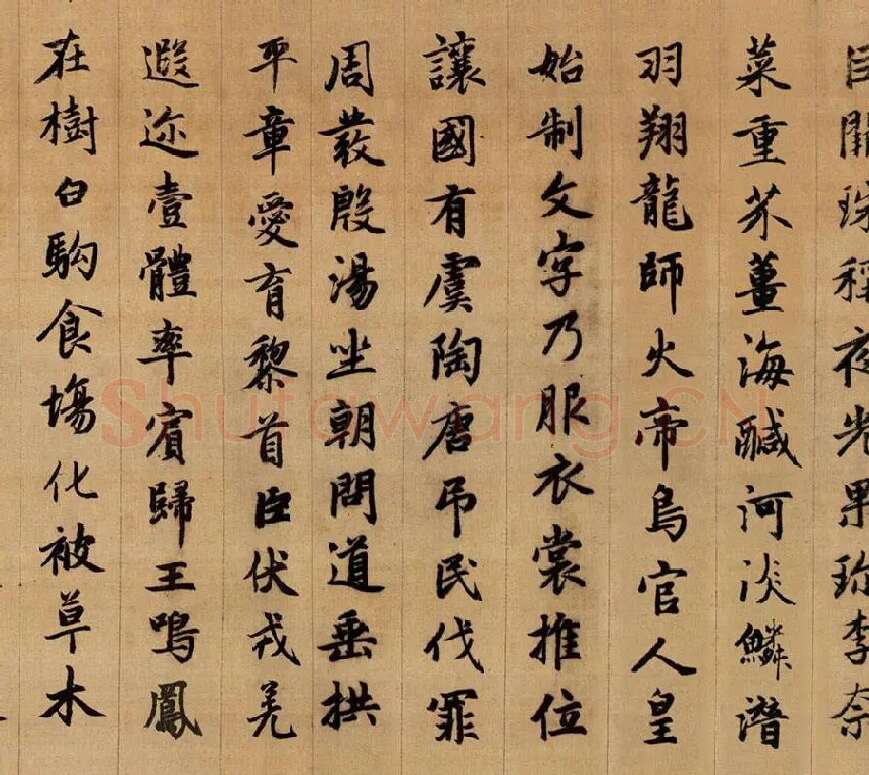 巨闕珠稱夜光果珍李柰
菜重芥薑海醎河淡鱗潛
羽翔龍師火帝鳥官人皇
始制文字乃服衣裳推位
讓國有虞陶唐吊民伐罪
周發殷湯坐朝問道垂拱
平章愛育黎首臣伏戎羌
遐迩壹體率賓歸王鳴鳳
在樹白駒食場化被草木
Shufawang.CN